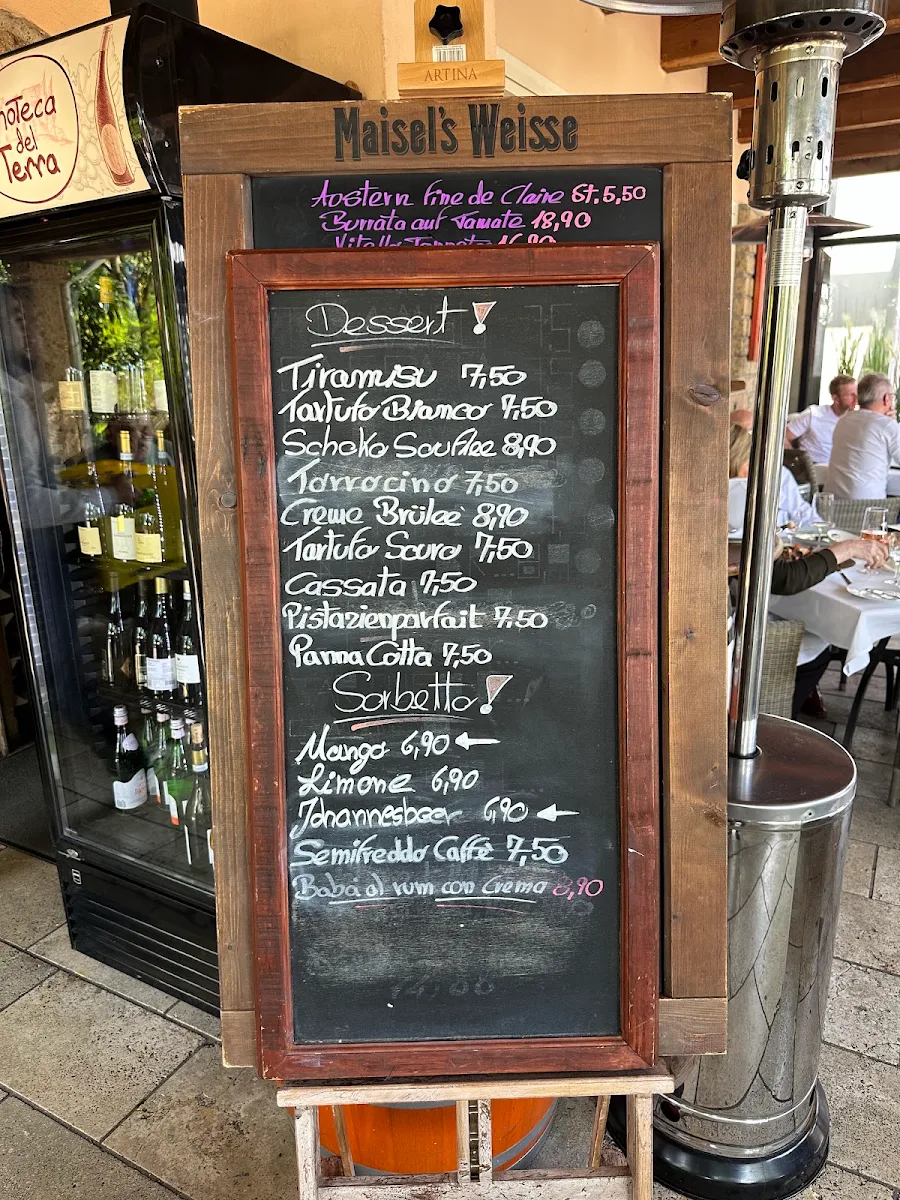 ARTINA
noteca
del
Terra
Maisel's Weisse
Aostern Fine de Claire St. 5,50
Burrata auf Tomate 18,90
Vitello Tonnato 16,90
Dessert!
Tiramisu 7,50
Tartufo Bianco 7,50
Schoko Souflee 8,90
Torrocino 7,50
Creme Brûleè 8,90
Tartufo Scuro 7,50
Cassata 7,50
Pistazienparfait 7,50
Panna Cotta 7,50
Sorbetto!
Mango 6,90 ←
Limone 6,90
Johannesbeer 6,90 ←
Semifreddo Caffè 7,50
Babà al rum con Crema 8,90